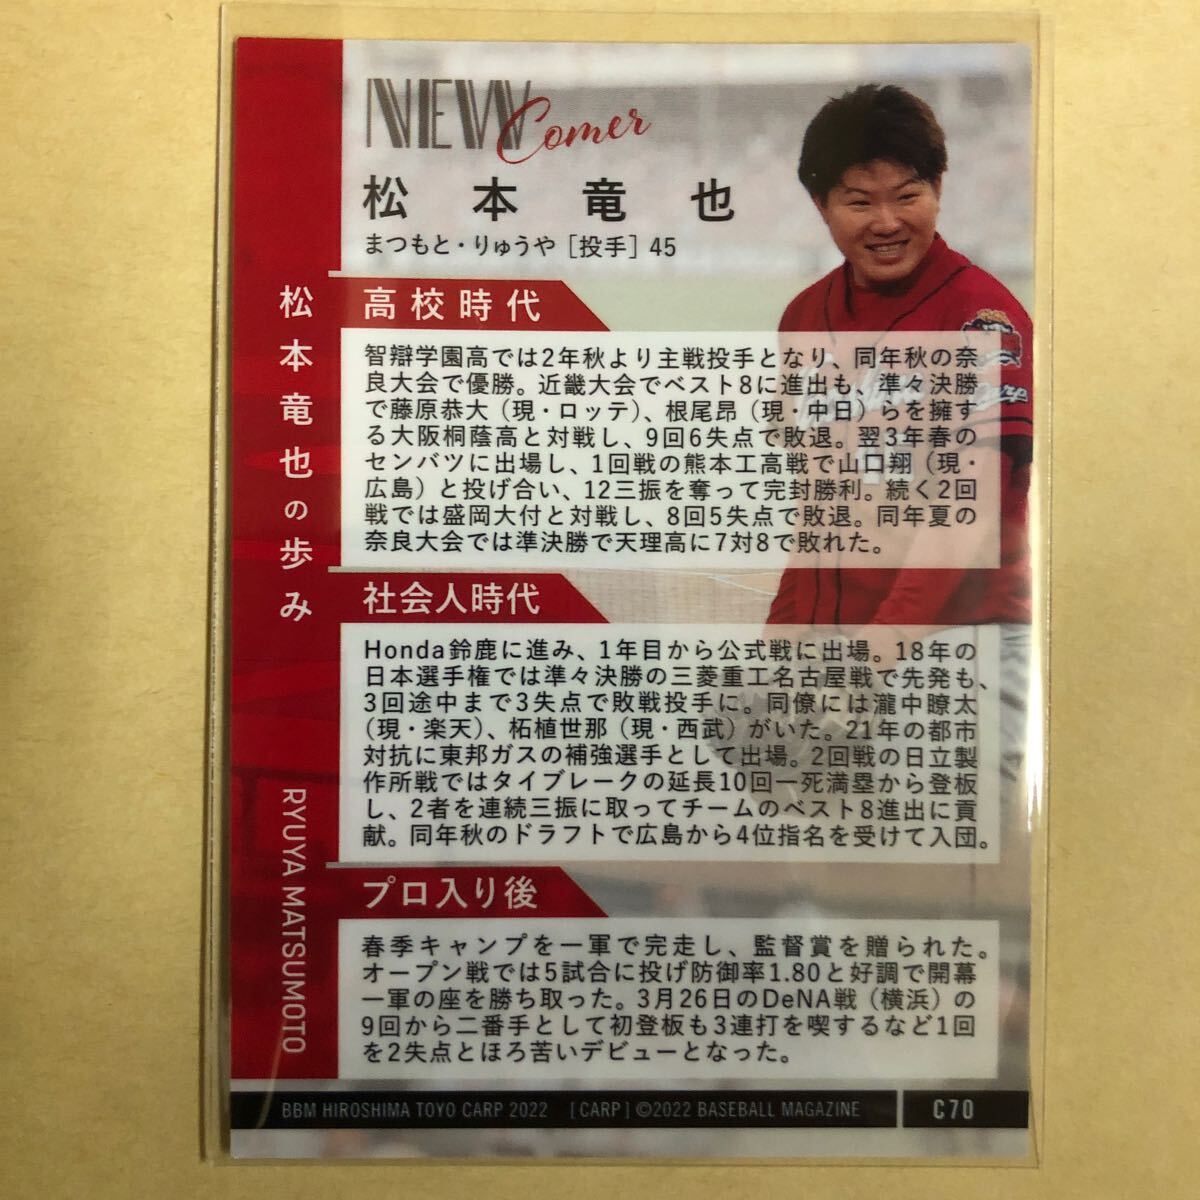 NEW Comer
松本竜也
まつもと・りゅうや［投手］45
松本竜也の歩み
RYUYA MATSUMOTO
高校時代
智辯学園高では2年秋より主戦投手となり、同年秋の奈
良大会で優勝。近畿大会でベスト8に進出も、準々決勝
で藤原恭大（現・ロッテ）、根尾昂（現・中日）らを擁す
る大阪桐蔭高と対戦し、9回6失点で敗退。翌3年春の
センバツに出場し、1回戦の熊本工高戦で山口翔（現・
広島）と投げ合い、12三振を奪って完封勝利。続く2回
戦では盛岡大付と対戦し、8回5失点で敗退。同年夏の
奈良大会では準決勝で天理高に7対8で敗れた。
社会人時代
Honda鈴鹿に進み、1年目から公式戦に出場。18年の
日本選手権では準々決勝の三菱重工名古屋戦で先発も、
3回途中まで3失点で敗戦投手に。同僚には瀧中瞭太
（現・楽天）、柘植世那（現・西武）がいた。21年の都市
対抗に東邦ガスの補強選手として出場。2回戦の日立製
作所戦ではタイブレークの延長10回一死満塁から登板
し、2者を連続三振に取ってチームのベスト8進出に貢
献。同年秋のドラフトで広島から4位指名を受けて入団。
プロ入り後
春季キャンプを一軍で完走し、監督賞を贈られた。
オープン戦では5試合に投げ防御率1.80と好調で開幕
一軍の座を勝ち取った。3月26日のDeNA戦（横浜）の
9回から二番手として初登板も3連打を喫するなど1回
を2失点とほろ苦いデビューとなった。
BBM HIROSHIMA TOYO CARP 2022 [CARP] ©2022 BASEBALL MAGAZINE C70